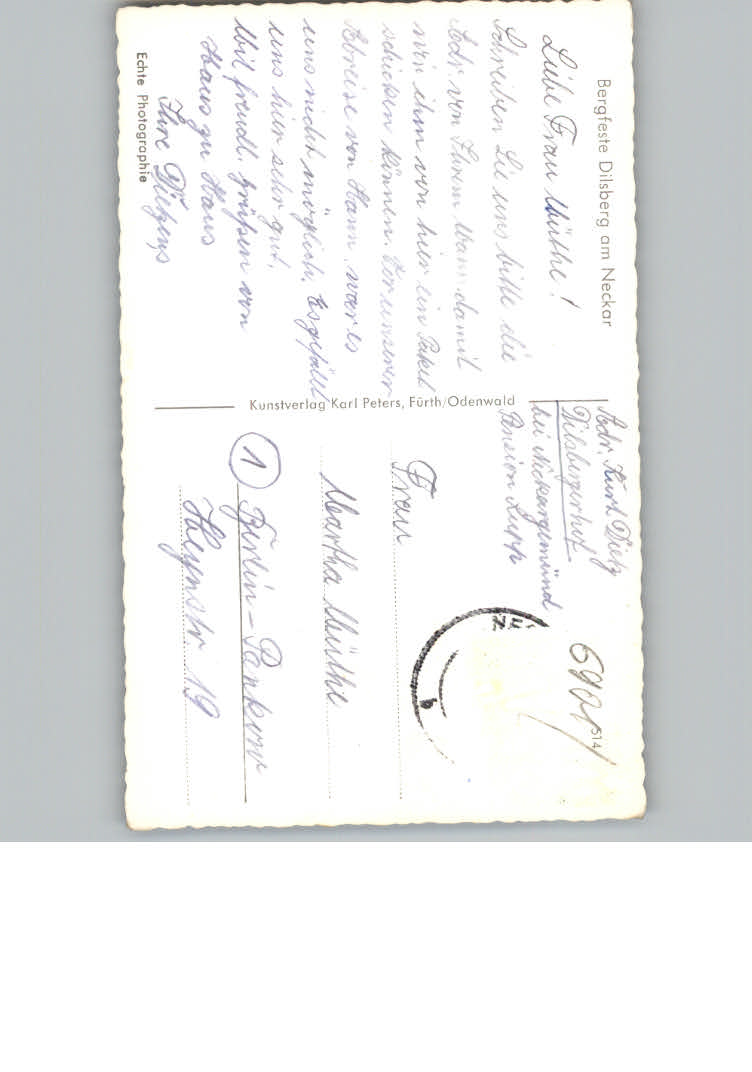 Bergfeste Dilsberg am Neckar
Liebe Frau Müthe!
Schreiben Sie uns bitte die
Adr. von Ihrem Mann damit
wir ihm von hier ein Paket
schicken können. Vor unserer
Abreise von Hann. war es
uns nicht möglich. Es gefällt
uns hier sehr gut.
Mit freundl. Grüßen von
Haus zu Haus
Ihre Dietzens
Echte Photographie
Kunstverlag Karl Peters, Fürth/Odenwald
Adr. Kurt Dietz
Dilsbergerhof
bei Neckargemünd
Pension Rupp
514
b
Frau
Martha Müthe
1 Berlin-Pankow
Heynstr. 19